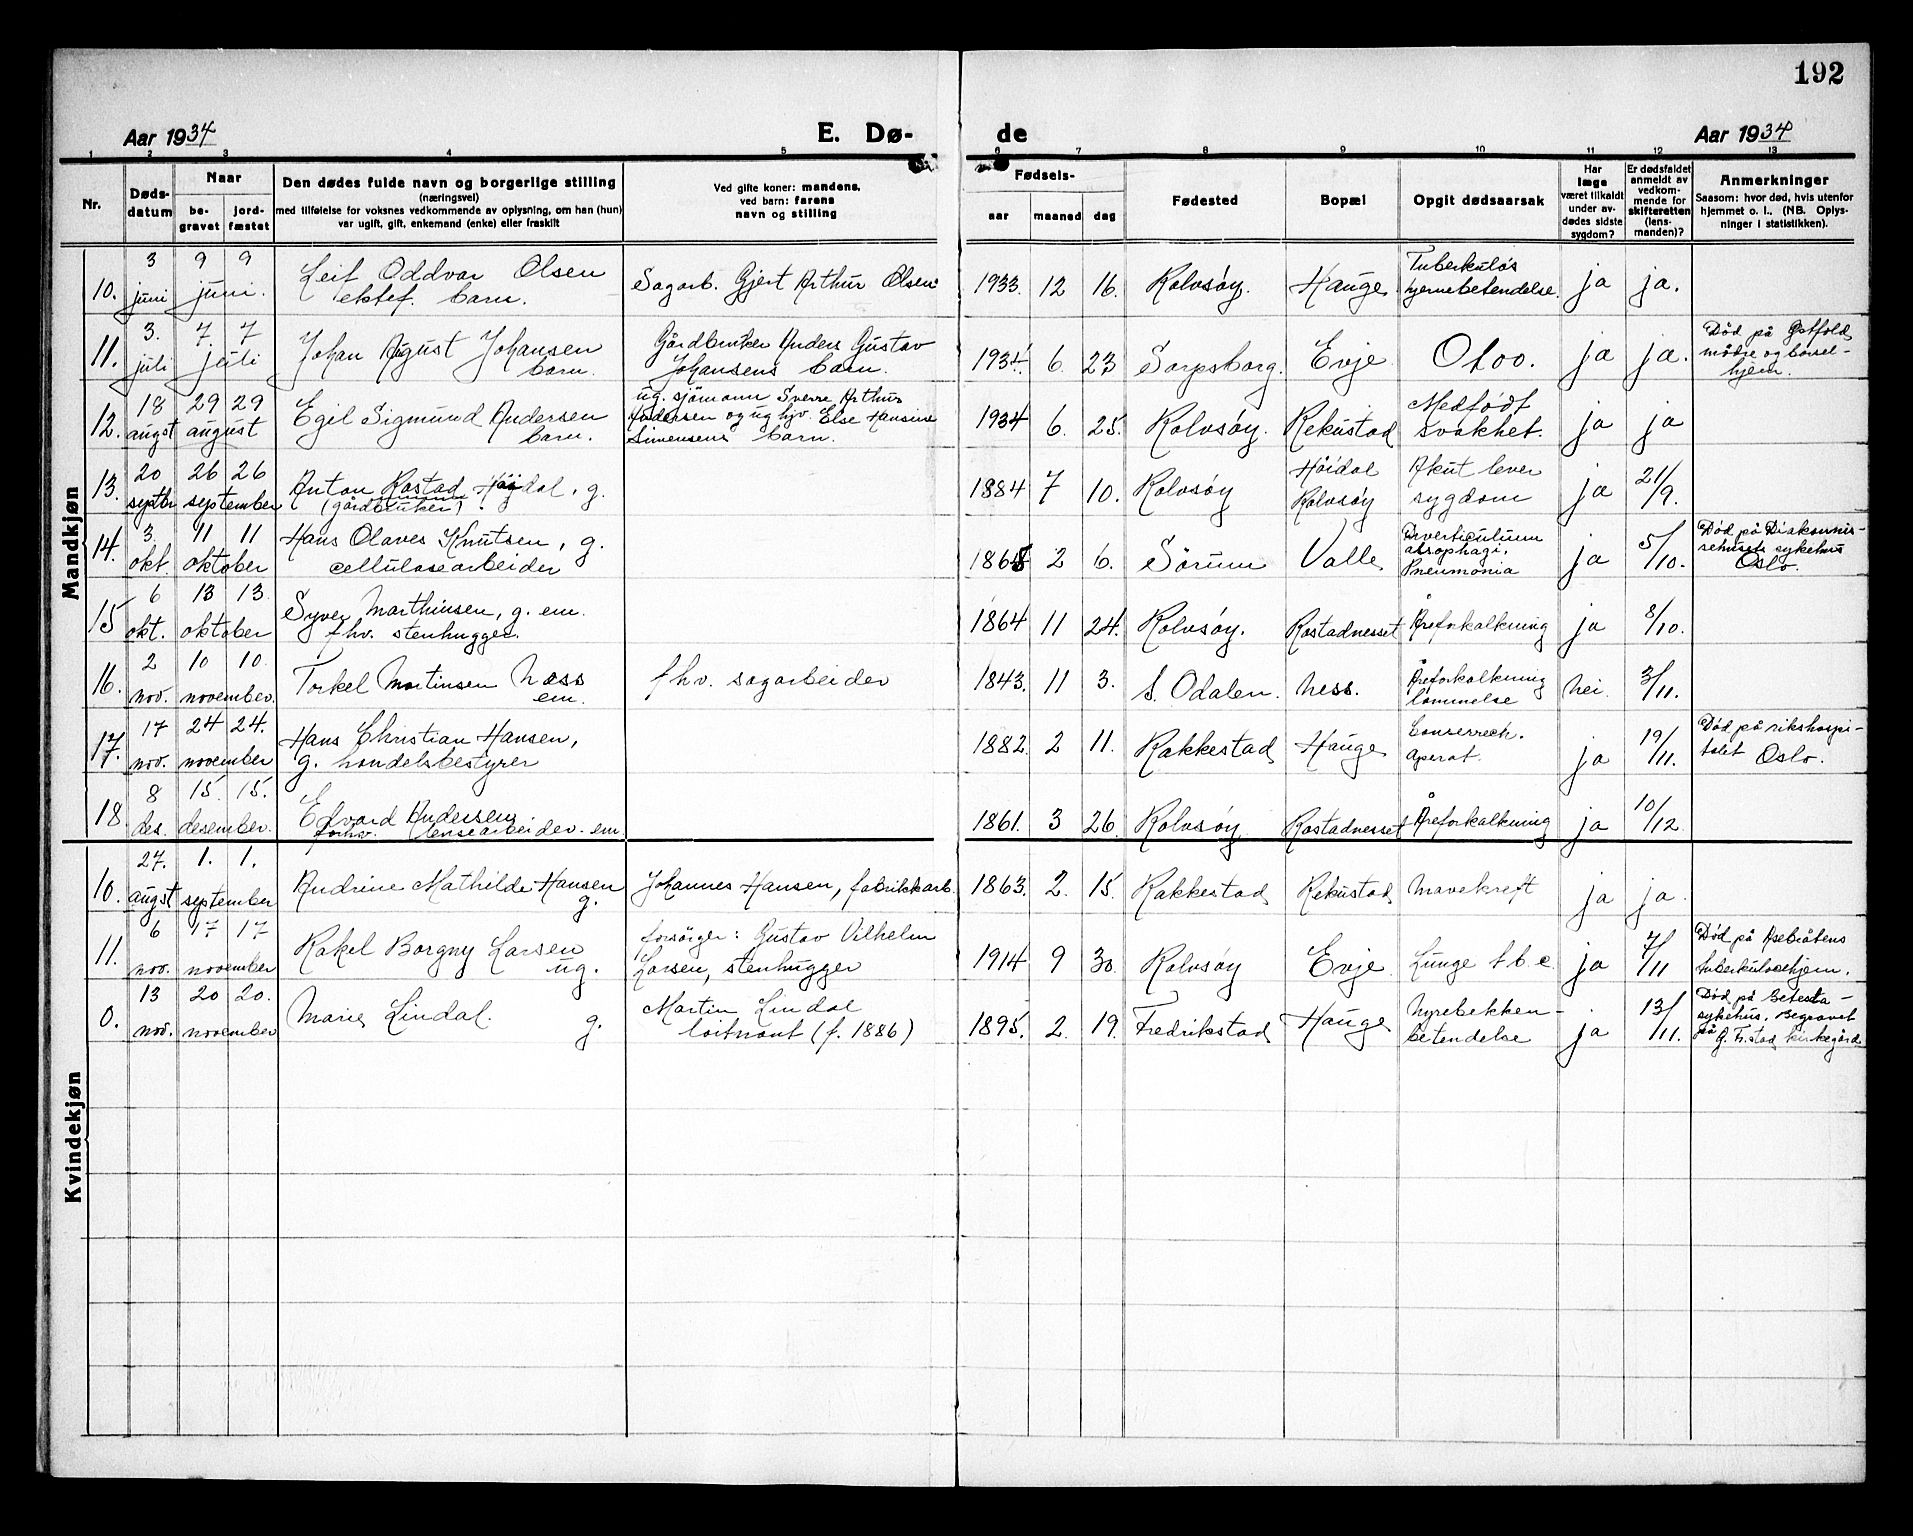 192
Aar 1934 E. Dø- de Aar 1934
1 2 3 4 5 6 7 8 9 10 11 12 13
Nr.
Døds-
datum
Naar
be-
gravet
jord-
fæstet
Den dødes fulde navn og borgerlige stilling
(næringsvei)
med tilføielse for voksnes vedkommende av oplysning, om han (hun)
var ugift, gift, enkemand (enke) eller fraskilt
Ved gifte koner: mandens,
ved barn: farens
navn og stilling
Fødsels-
aar maaned dag
Fødested
Bopæl
Opgit dødsaarsak
Har
læge
været tilkaldt
under av-
dødes sidste
sygdom?
Er dødsfaldet
anmeldt av
vedkom-
mende for
skifteretten
(lens-
manden)?
Anmerkninger
Saasom: hvor død, hvis utenfor
hjemmet o. l., (NB. Oplys-
ninger i statistikken).
Mandkjøn
10. 3 juni 9 9 juni.
Leif Oddvar Olsen
ektef. barn.
Sagarb. Gjert Arthur Olsen
1933. 12 16. Rolvsøy. Hauge
Tuberkuløs
hjernebetendelse.
ja ja.
11. 3. juli 7. 7 juli
Johan August Johansen
barn.
Gårdbruker Anders Gustav
Johansens barn.
1934. 6. 23 Sarpsborg. Evje
ja ja.
Død på Østfold
mødre og barsel-
hjem.
12. 18 augst 29 29 august
Egil Sigmund Andersen
barn.
ug. sjømann Sverre Arthur
Andersen og ug hjv. Else Hansine
Simensens barn.
1934 6. 25. Rolvsøy. Rekustad
Medfødt
svakhet.
ja ja
13. 20 septbr 26 26 september
Anton Rostad Høidal, g.
(gårdbruker).
1884 7 10. Rolvsøy
Høidal
Rolvsøy
Akut lever
sygdom
ja 21/9.
14. 3. okt. 11 11 oktober
Hans Olaves Knutsen, g.
cellulosearbeider
1865 2 6. Sørum Valle
Diverticulum
Pneumonia
ja 5/10.
Død på Diakonnis-
sehusets sykehus
Oslo.
15 6 okt. 13 13. oktober
Syver Marthinsen, g. em.
fhv. stenhugger.
1864 11 24. Rolvsøy. Rostadnesset Åreforkalkning ja 8/10.
16. 2 nov. 10 10. november.
Torkel Martinsen Næss
em.
fhv. sagarbeider
1843. 11 3. S. Odalen. Ness.
Åreforkalkning
lammelse
nei. 3/11.
17. 17 nov. 24 24. november
Hans Christian Hansen,
g. handelsbestyrer
1882. 2 11. Rakkestad Hauge
ja 19/11.
Død på rikshospi-
talet Oslo.
18 8 des. 15. 15. desember.
Edvard Andersen
forhv. lensearbeider. em.
1861. 3 26. Rolvsøy Rostadnesset Åreforkalkning ja 10/12
Kvindekjøn
10. 27. augst 1. 1. september
Andrine Mathilde Hansen
g.
Johannes Hansen, fabrikkarb.
1863. 2. 15. Rakkestad Rekustad Mavekreft ja ja.
11. 6 nov. 17 17 november
Rakel Borgny Larsen
ug.
forsørger: Gustav Vilhelm
Larsen, stenhugger
1914 9 30. Rolvsøy Evje. Lunge tbc ja 7/11
Død på Asebråtens
tuberkulosehjem.
0. 13 nov. 20 20. november
Marie Lindal. g.
Martin Lindal
løitnant (f. 1886)
1895. 2. 19. Fredrikstad Hauge
Nyrebekken-
betendelse
ja 13/11.
Død på Betesda-
sykehus. Begravet
på G. Fr.stad kirkegård